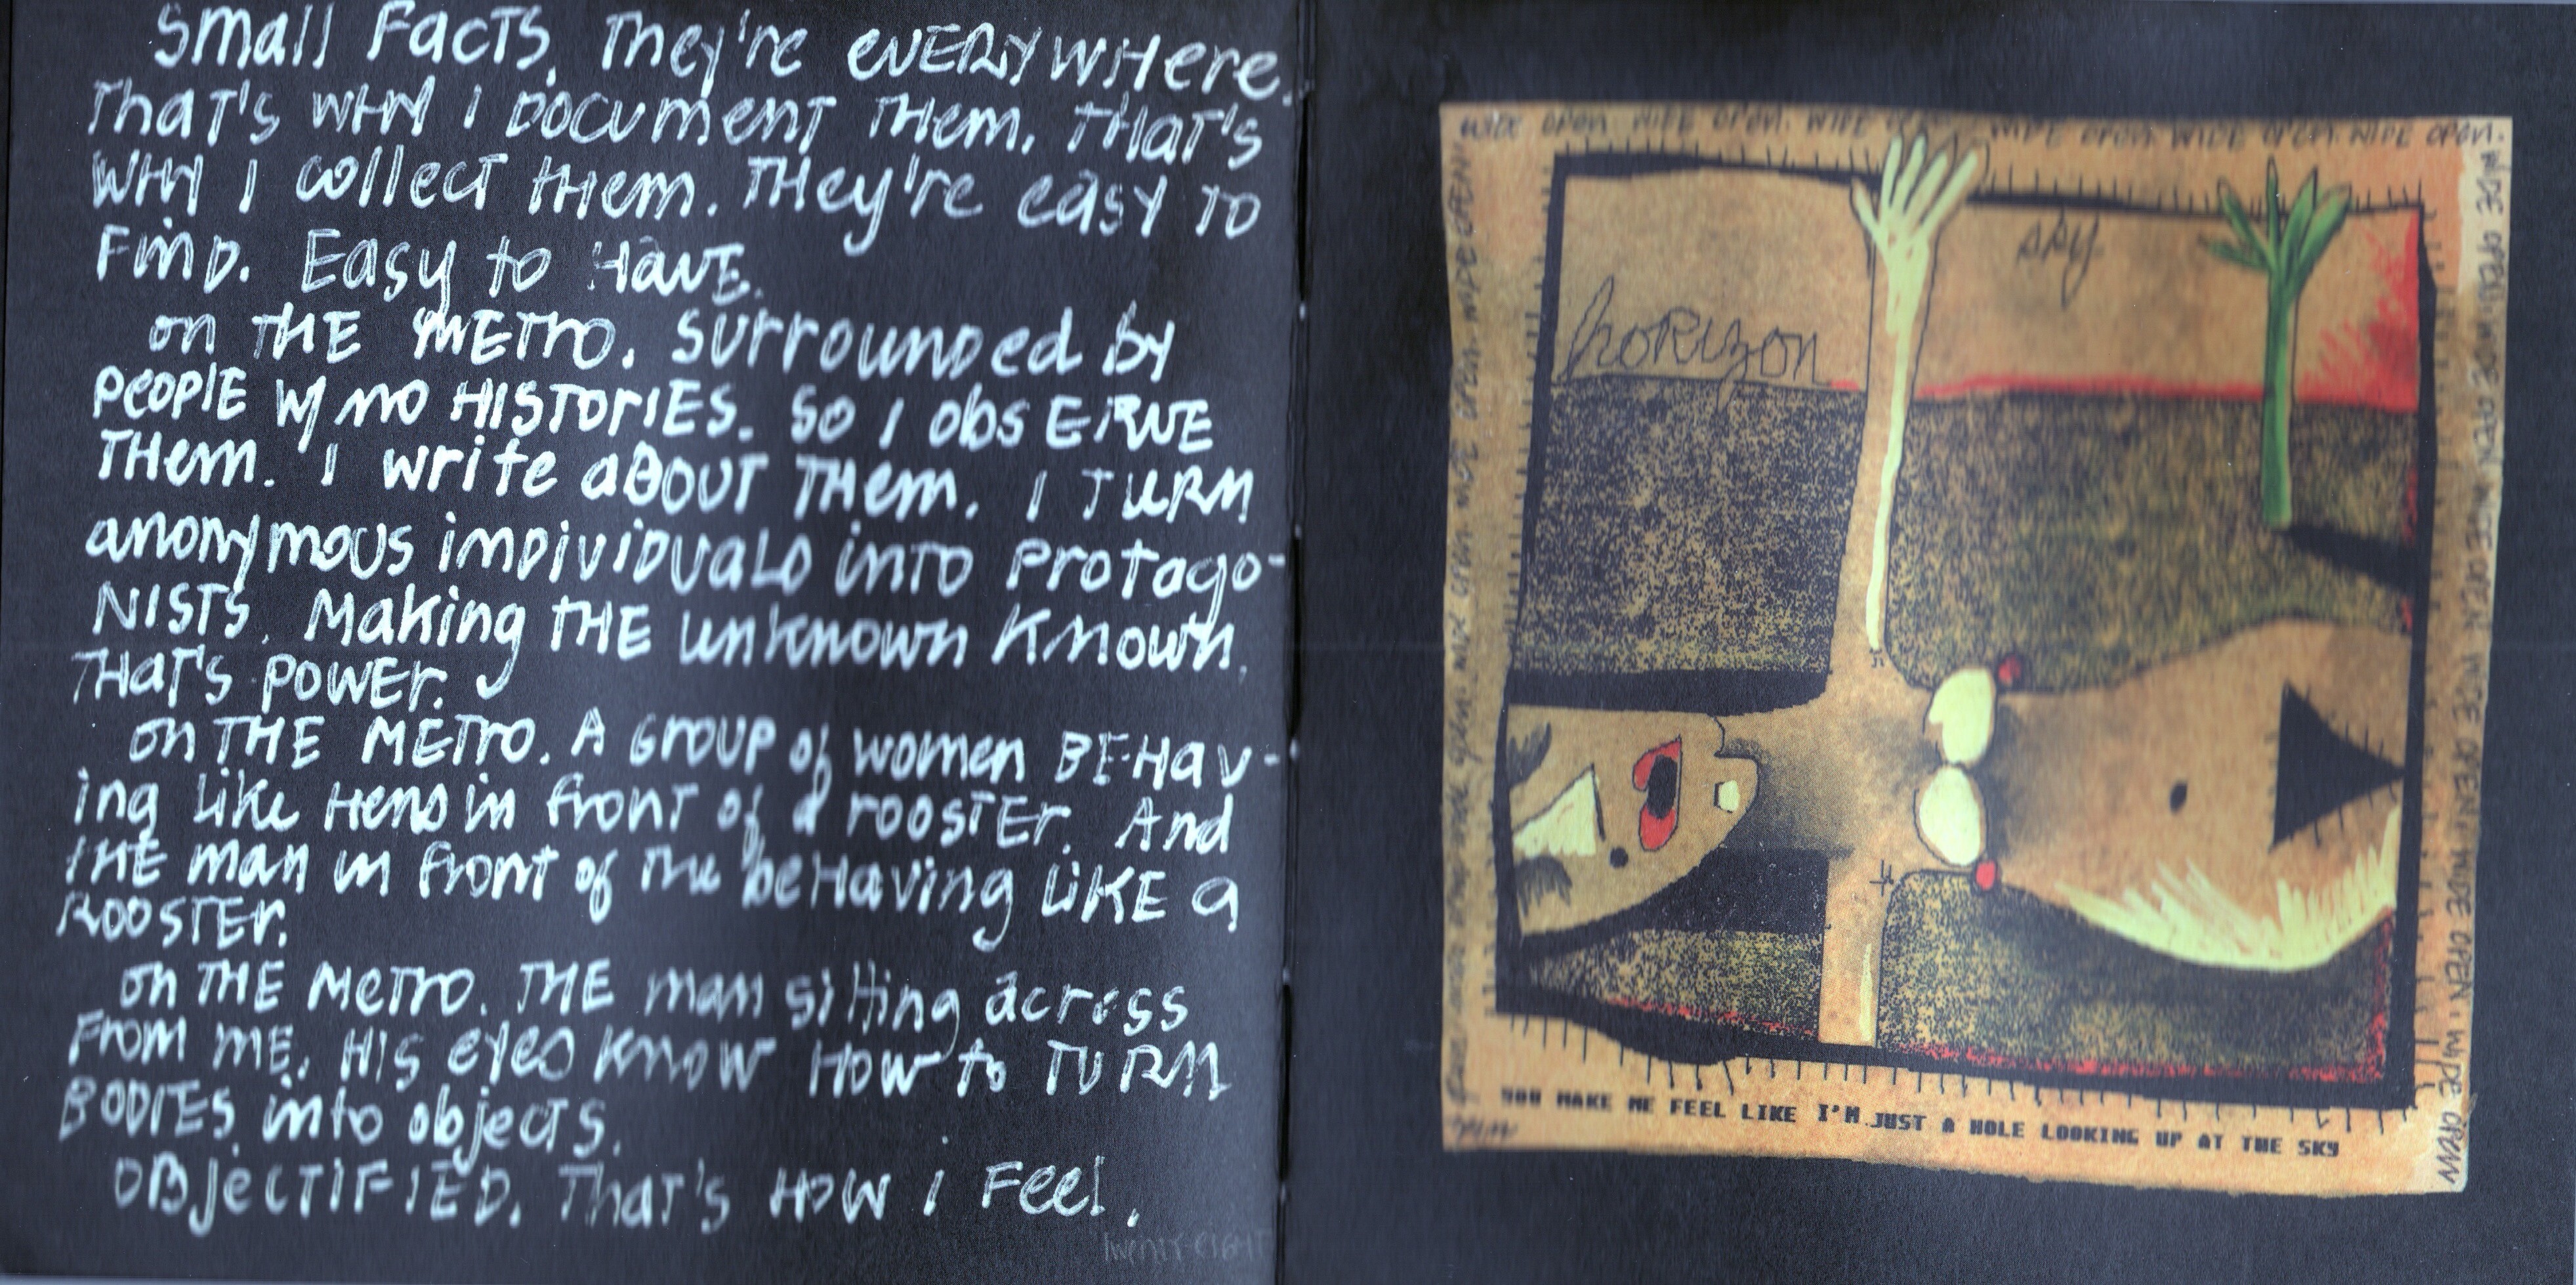 Small Facts. They're everywhere.
That's why I document them. That's
why I collect them. They're easy to
find. Easy to have.
on the metro. Surrounded by
people w/ no histories. So I observe
them. I write about them. I turn
anonymous individuals into protago-
nists. Making the unknown known.
That's power.
on the metro. A group of women behav-
ing like hens in front of a rooster. And
the man in front of the behaving like a
rooster.
on the metro. The man sitting across
from me. His eyes know how to turn
bodies into objects.
Objectified. That's how I feel.
Twenty-eight
wide open. wide open. wide open. wide open. wide open. wide open.
wide open. wide open. wide open. wide open. wide open. wide open. wide open. wide open
sky
horizon
YOU MAKE ME FEEL LIKE I'M JUST A HOLE LOOKING UP AT THE SKY